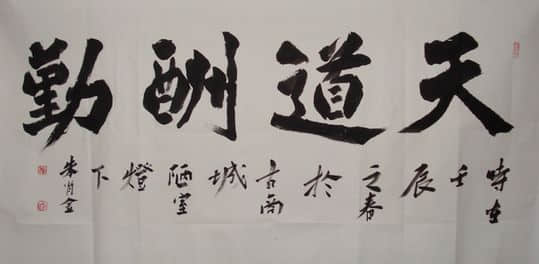 天道酬勤
時在壬辰之春於古商城陋室燈下
朱肖